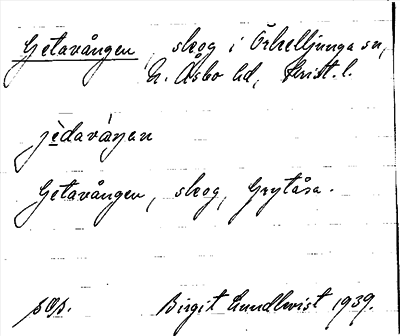 Getavången, skog i Örkelljunga sn,
N. Åsbo hd, Krist. l.
jèdavàŋan
Getavången, skog, Grytåsa.
Birgit Lundkvist 1939.